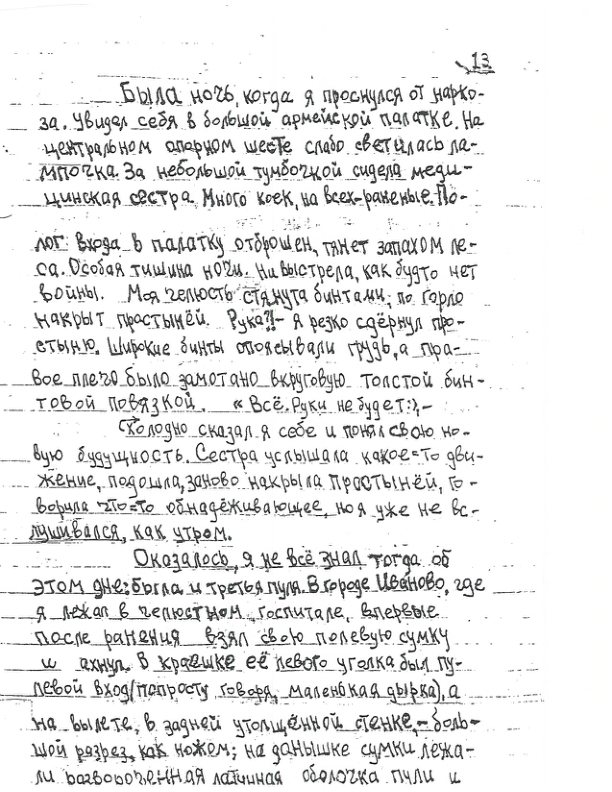 13
Была ночь, когда я проснулся от нарко-
за. Увидел себя в большой армейской палатке. На
центральном опорном шесте слабо светилась ла-
мпочка. За небольшой тумбочкой сидела меди-
цинская сестра. Много коек, на всех-раненые. По-
лог входа в палатку отброшен, тянет запахом ле-
са. Особая тишина ночи. Ни выстрела, как будто нет
войны. Моя челюсть стянута бинтами, по горло
накрыт простынёй. Рука?!- я резко сдёрнул про-
стыню. Широкие бинты опоясывали грудь, а пра-
вое плечо было замотано вкруговую толстой бин-
товой повязкой. «Всё. Руки не будет.», -
холодно сказал я себе и понял свою но-
вую будущность. Сестра услышала какое-то дви-
жение, подошла, заново накрыла простынёй, го-
ворила что-то обнадёживающее, но я уже не вс-
лушивался, как утром.
Оказалось, я не всё знал тогда об
этом дне: была и третья пуля. В городе Иваново, где
я лежал в челюстном госпитале, впервые
после ранения взял свою полевую сумку
и ахнул. В краешке её левого уголка был пу-
левой вход (попросту говоря, маленькая дырка), а
на вылете, в задней утолщённой стенке, - боль-
шой разрез, как ножем; на данышке сумки лежа-
ли развороченная латунная оболочка пули и